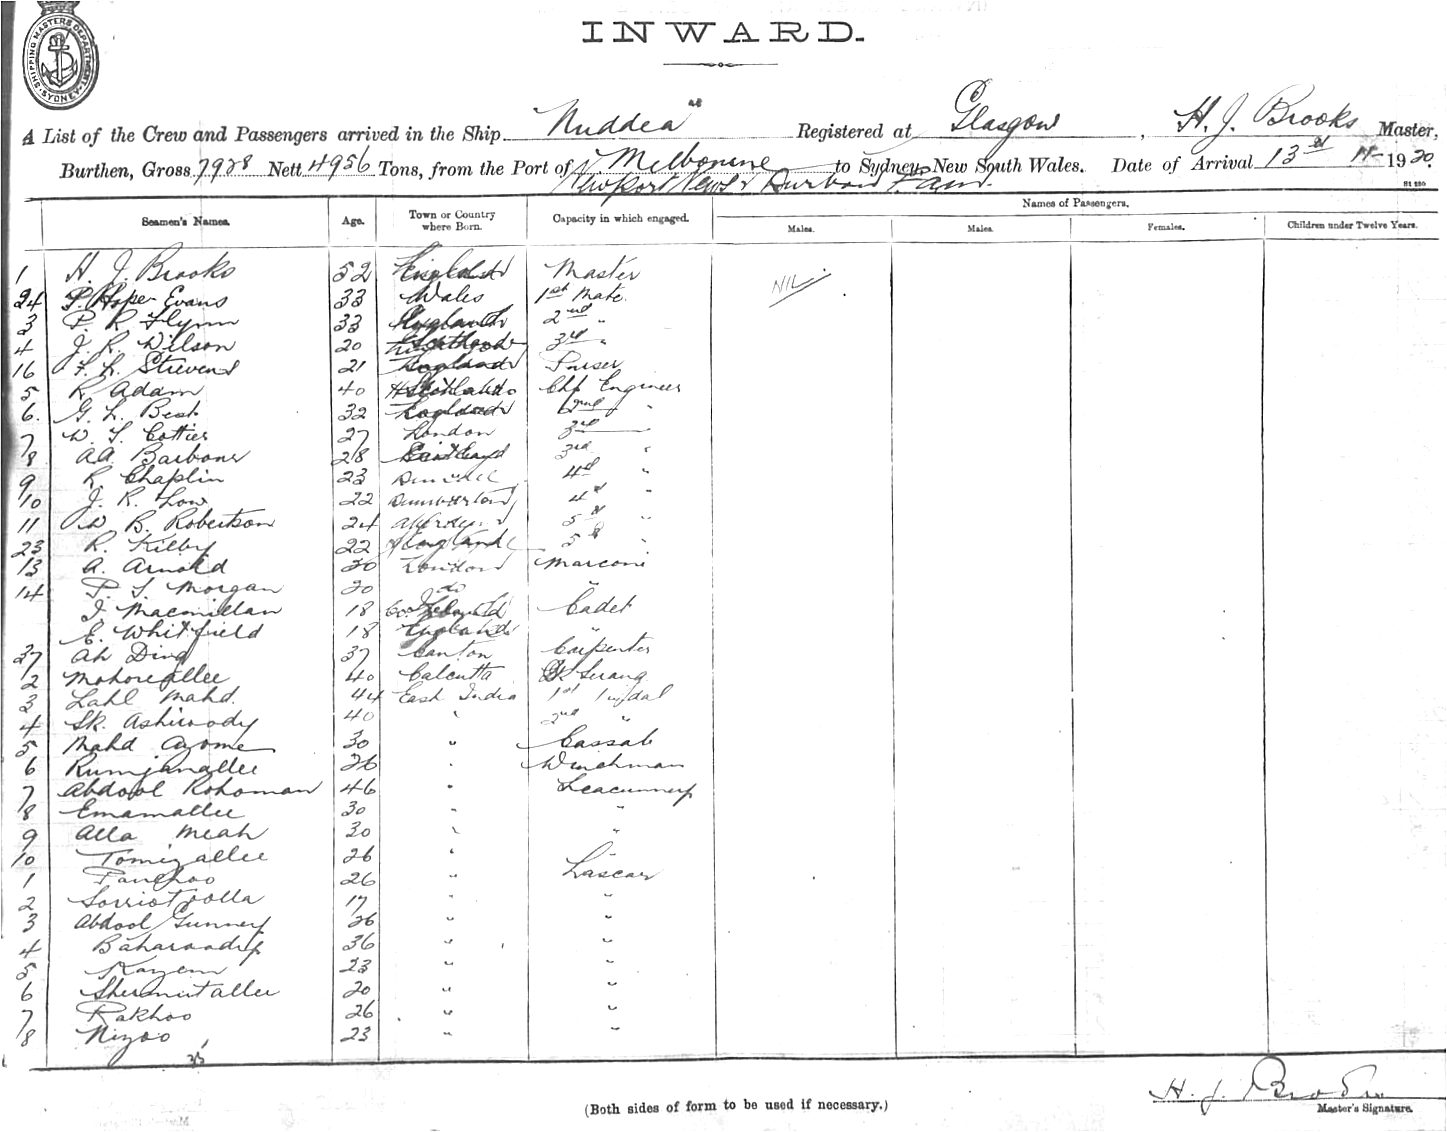 SHIPPING MASTERS DEPARTMENT SYDNEY
INWARD.
A List of the Crew and Passengers arrived in the Ship Nuddea Registered at Glasgow, H. J. Brooks Master,
Burthen, Gross 7928 Nett 4956 Tons, from the Port of Melbourne to Sydney New South Wales. Date of Arrival 13th 1920.
Newport News Durban
Seamen's Names. Age. Town or Country where Born. Capacity in which engaged. Names of Passengers.
Males. Males. Females. Children under Twelve Years.
1 H. J. Brooks 52 England Master NIL
24 P. Hope Evans 33 Wales 1st Mate
3 P. R. Flynn 33 England 2nd "
4 J. R. Wilson 20 3rd "
16 F. L. Stievens 21 England Purser
5 R. Adam 40 Chf Engineer
6. G. L. Best 32 England 2nd "
7 W. S. Cottier 27 London 3rd
8 A A. Barbour 28 3rd "
9 R. Chaplin 23 Dundee 4th "
10 J. R. Low 22 Dumbarton 4th "
11 W B. Robertson 24 Aberdeen 5th "
23 R. Kilby 22 England 5th "
13 A. Arnold 30 London Marconi
14 P. S. Morgan 20 do "
J. Macmillan 18 Co. Cadet
E. Whitfield 18 England "
27 Ah Ding 37 Canton Carpenter
2 Mohoreallee 40 Calcutta Serang
3 Lahl Mahd. 44 East India 1st Tindal
4 Sk. Ashiroody 40 " 2nd "
5 Mahd Azome 30 " Cassab
6 Rumjanallee 26 " Winchman
7 Abdool Rohoman 46 " Seacunny
8 Emamallee 30 " "
9 Alla Meah 30 " "
10 Tomizallee 26 "
1 Panchoo 26 " Lascar
2 Sorriotoolla 17 " "
3 Abdool Gunney 26 " "
4 Baharoody 36 " "
5 Kazem 23 " "
6 Shermutallee 20 " "
7 Rakhoo 26 " "
8 Nizoo 23 " "
(Both sides of form to be used if necessary.)
H. J. Brooks
Master's Signature.